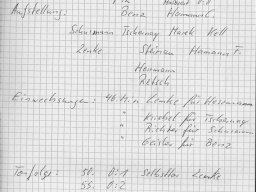 Aufstellung: Benz Hamann C.
Schumann Tschenay Mark Kell
Lenke Steinau Hamann F.
Herrmann
Retsch
Einwechslungen: 46. Min Lemke für Herrmann
" für Tschenay
" Richter für Schumann
" Geisler für Benz
Torfolge: 50. 0:1 Selbsttor Lemke
55. 0:2